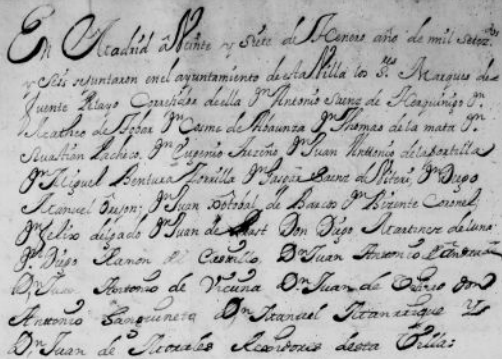 En Madrid a Veinte y siete de Henero año de mil setezos
y seis se juntaron en el ayuntamiento de esta Villa los Sres Marques de
fuente Pelayo Corregidor de ella Dn Antonio Saenz de Dn
Matheo de Tobar Dn Cosme de Dn Thomas de la mata Dn
Sevastian Pacheco, Dn Eugenio Dn Juan Anttonio de la Portilla
Dn Miguel Bentura Zorrilla Dn Gaspar Saenz de Viteri, Dn Diego
Manuel Dn Juan Xptobal de Barcos Dn Bizente Coronel,
Dn felix delgado Dn Juan de Don Diego Martinez de luna
Dn Diego Ramon del Castillo, Dn Juan Antonio
Dn Juan Antonio de Vicuna Dn Juan de don
Anttonio Sanguineto Dn Manuel Manrrique Y
Dn Juan de Morales Rexidores desta Villa: